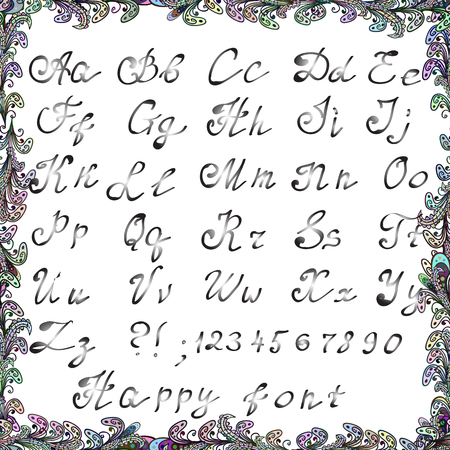 Aa Bb Cc Dd Ee
Ff Gg Hh Ii Jj
Kk Ll Mm Nn Oo
Pp Qq Rr Ss Tt
Uu Vv Ww Xx Yy
Zz ?! ; 1234567890
Happy font